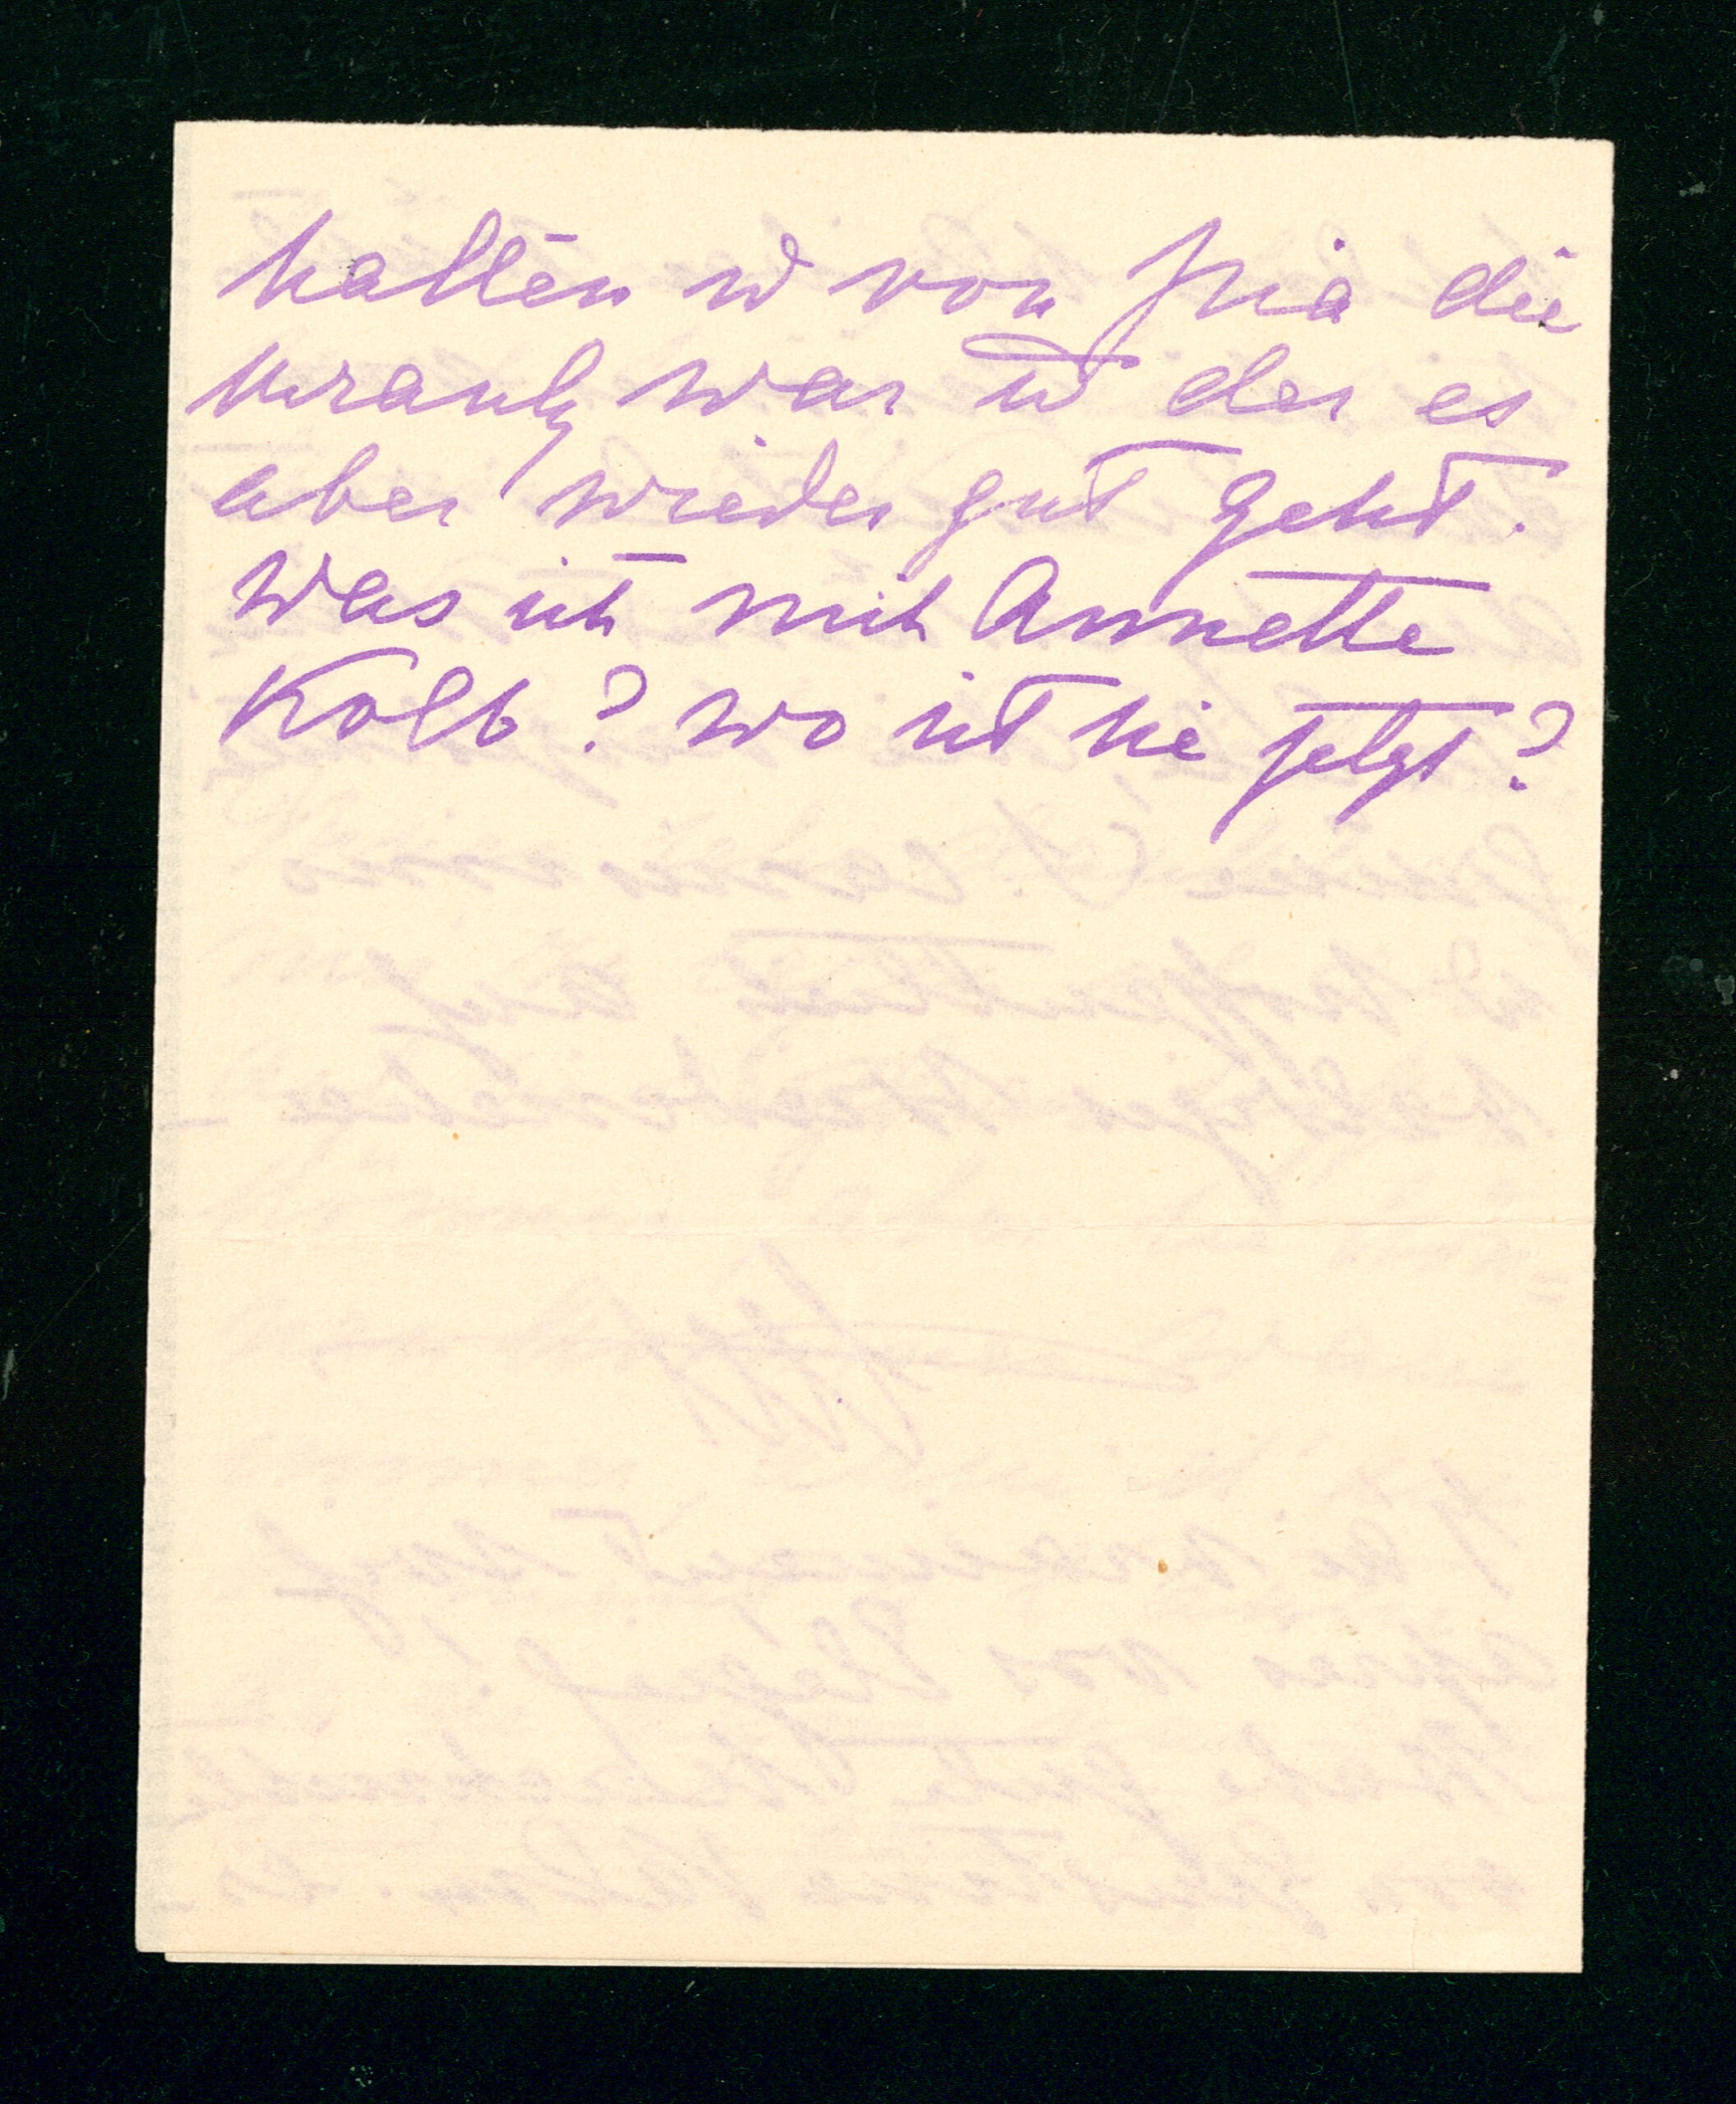 hatten u von die
krank war u der es
aber wieder gut geht.
Was ist mit Annette
Kolb? wo ist sie jetzt?